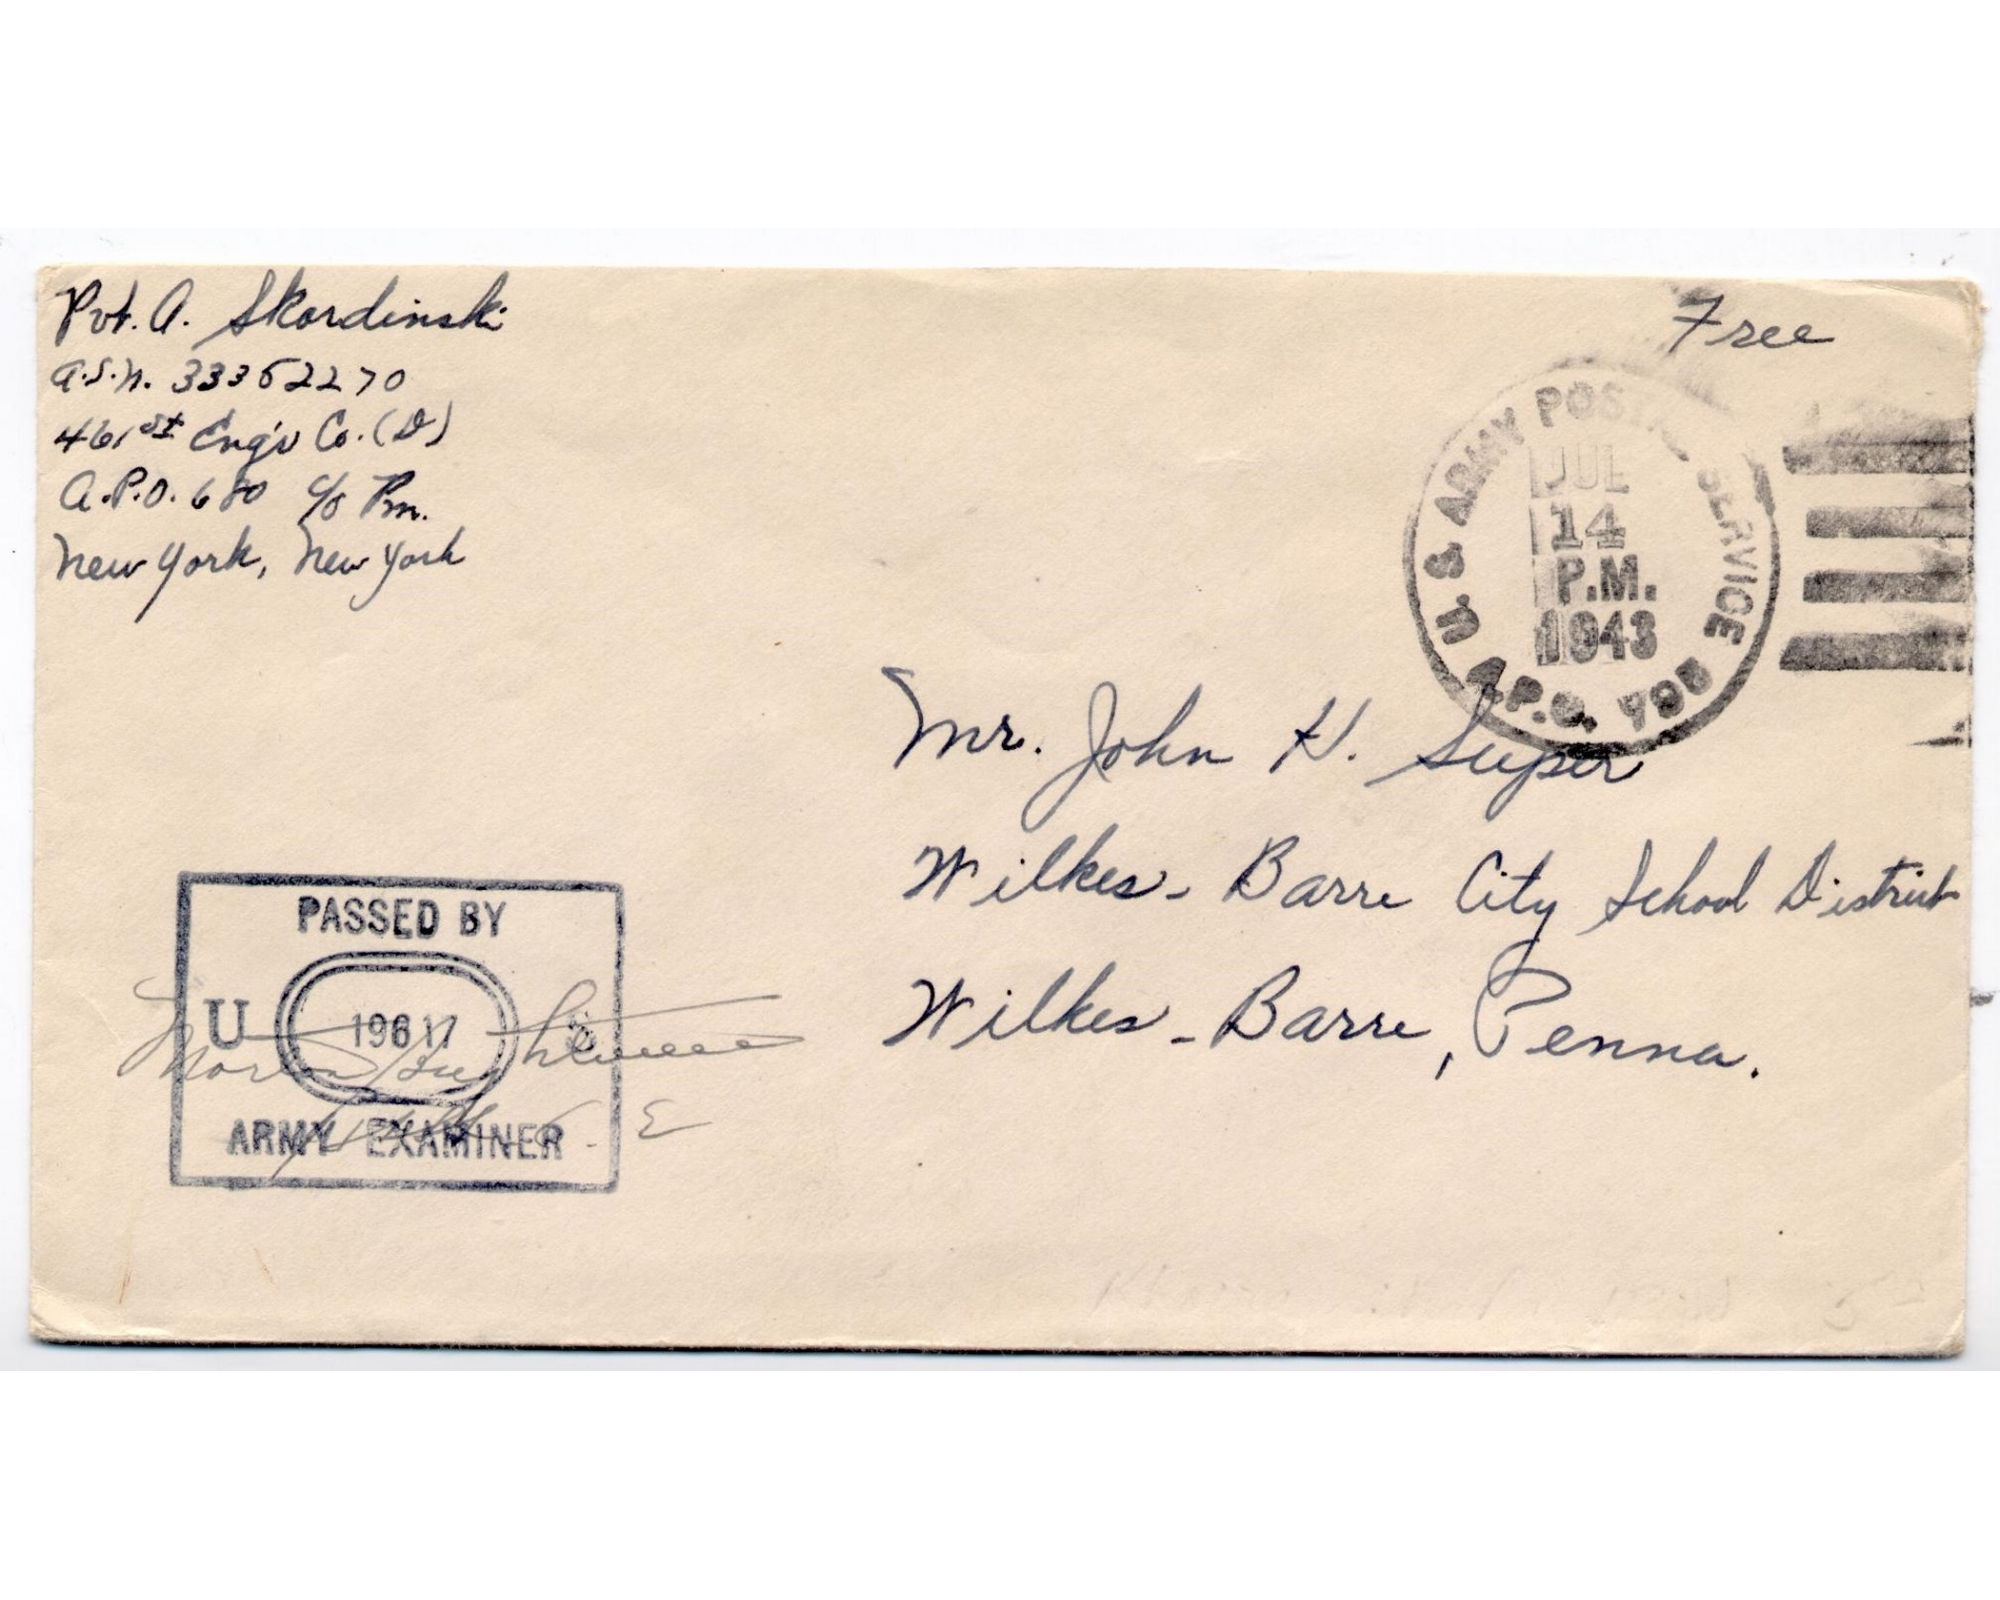 Pvt. A. Skordinski
A.S.N. 33362270
461st Eng'r Co. (D)
A.P.O. 680 c/o Pm.
New York, New York
Free
U.S. ARMY POSTAL SERVICE
JUL
14
P.M.
1943
A.P.O.
Mr. John H. Super
Wilkes-Barre City School District
Wilkes-Barre, Penna.
PASSED BY
U 19617 S
ARMY EXAMINER